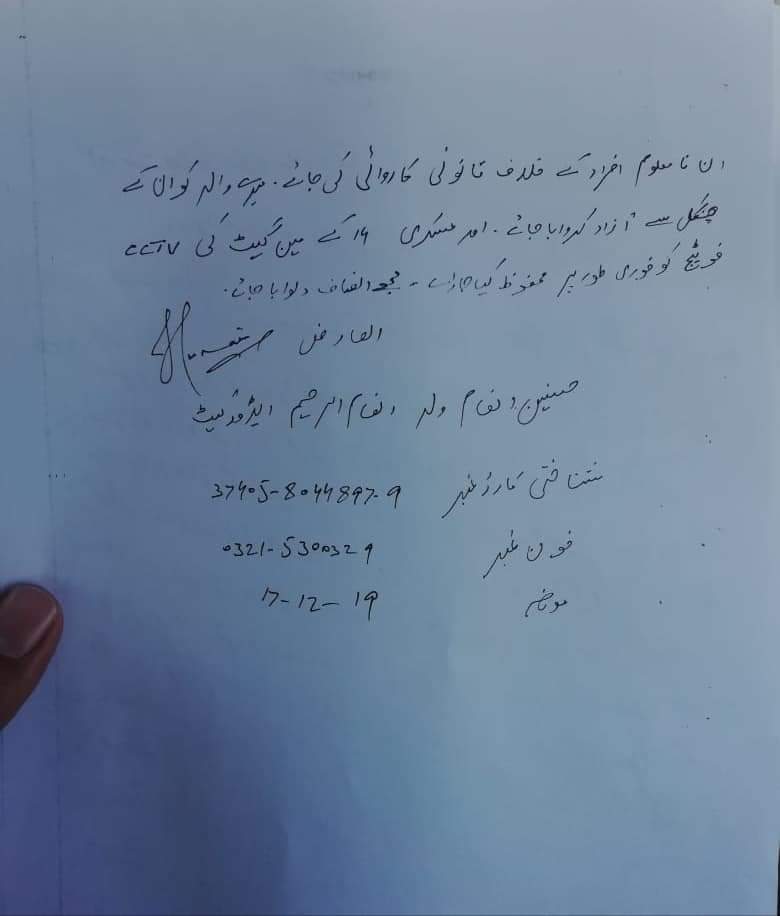 ان نا معلوم افراد کے خلاف قانونی کاروائی کی جائے۔ میرے والد کو ان کے
چنگل سے آزاد کروایا جائے۔ اور عسکری 14 کے مین گیٹ کی CCTV
فوٹیج کو فوری طور پر محفوظ کیا جائے۔ مجھے انصاف دلوایا جائے۔
العارض
حسنین انعام ولد انعام الرحیم ایڈوکیٹ
شناختی کارڈ نمبر 37405-8044897-9
فون نمبر 0321-5300329
مورخہ 17-12-19